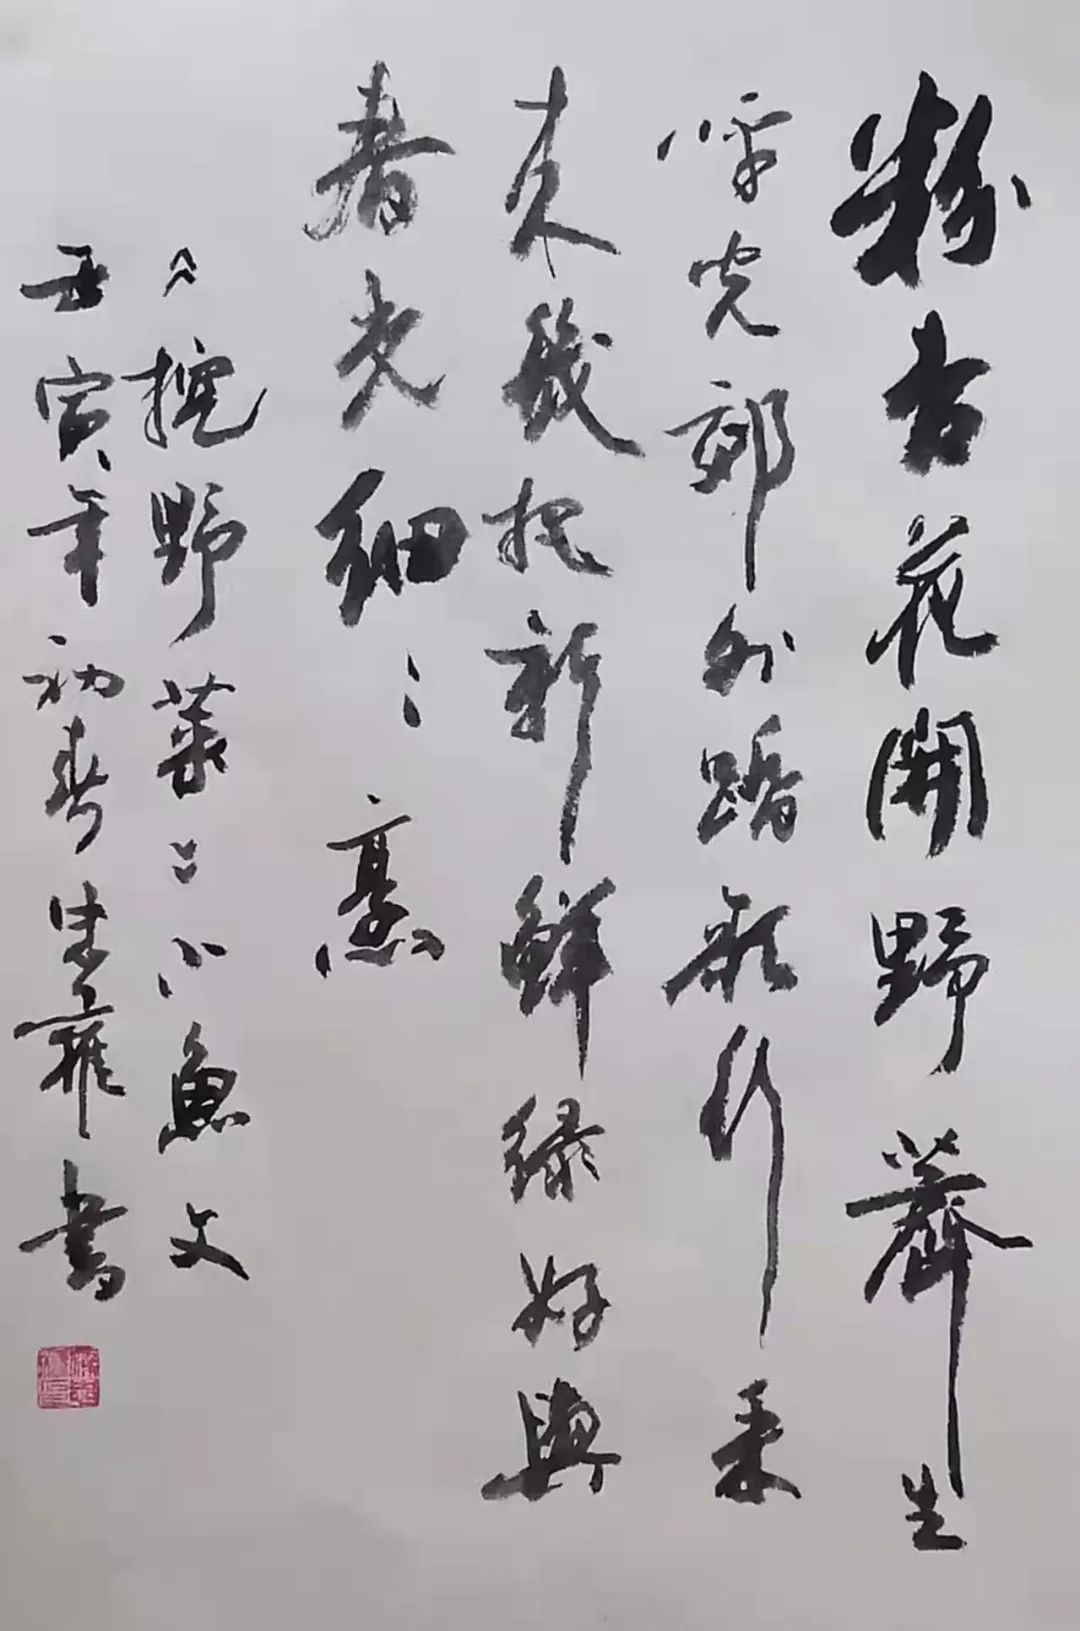 粉杏花開野薺生
呼兒郊外踏歌行采
来幾把新鮮緑好與
春光細〻烹
《挖野菜》小魚文
壬寅年初春朱雍書